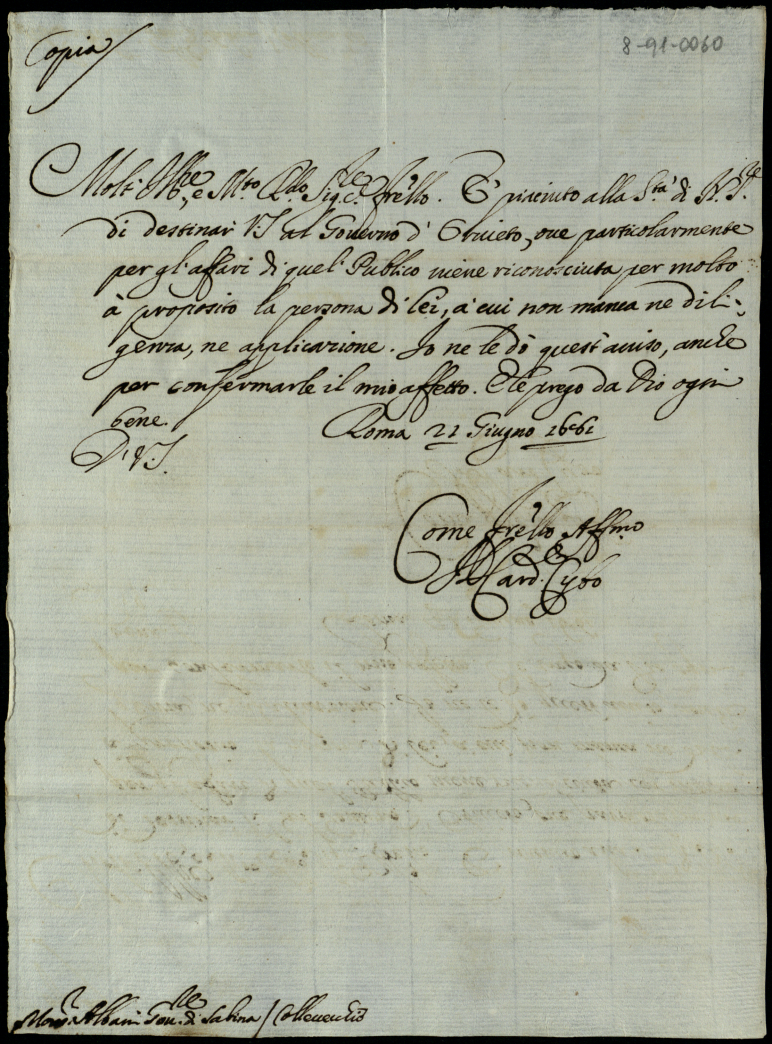 Copia
8-91-0060
Molt' Ill.re, e M.to R.do Sig.re Fr'ello. E' piaciuto alla S.tà di N. S.re
di destinar V.S. al Governo d' Orvieto, ove particolarmente
per gl'affari di quel Publico viene riconosciuta per molto
à proposito la persona di lei, à cui non manca ne dili-
genza, ne applicazione. Io ne le dò quest'aviso, anche
per confermarle il mio affetto. E le prego da Dio ogni
bene. Roma 21 Giugno 1661
D. V.S.
Come Fr'ello Aff.mo
Il Card. Cybo
Mons.r Albani Gov.re di Sabina / Collevecchio